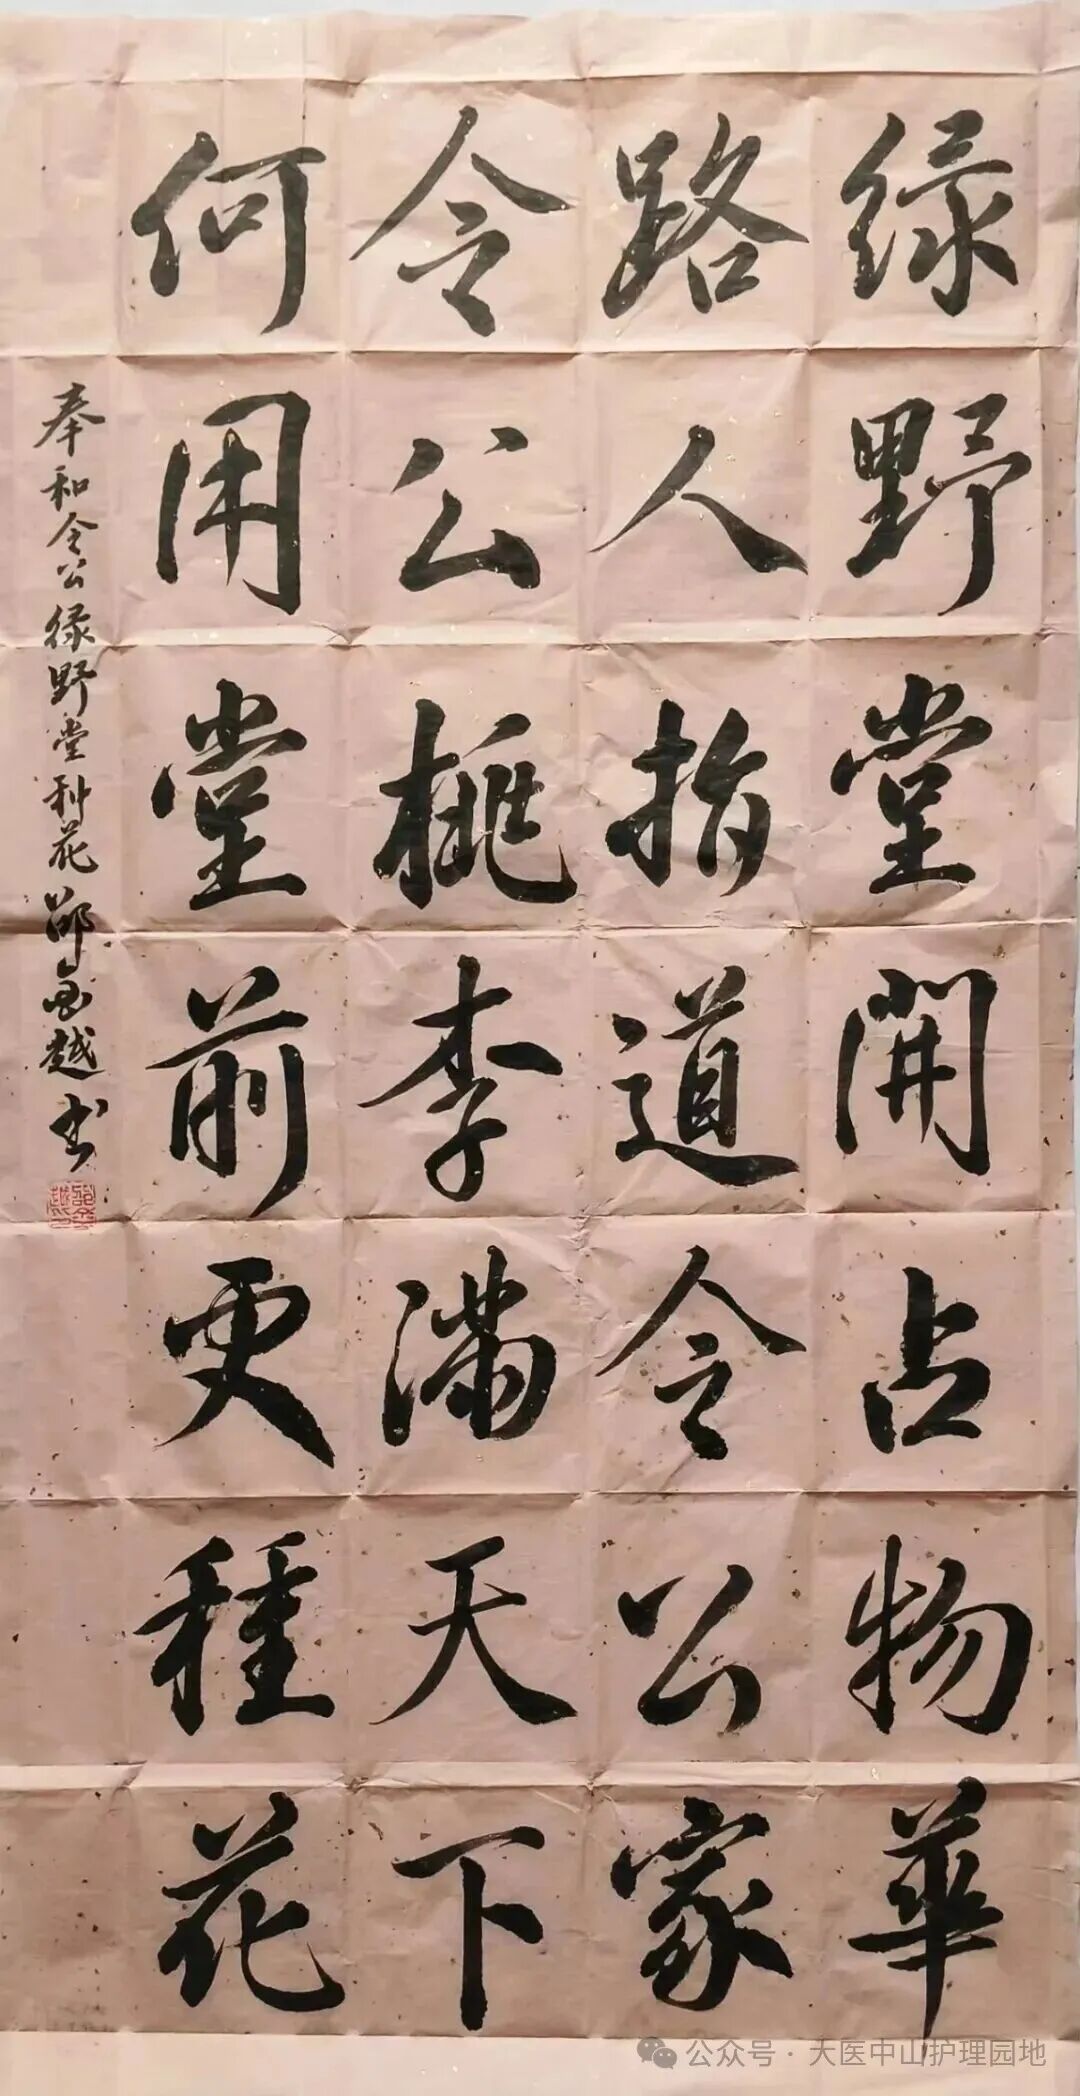 绿野堂開占物華
路人指道令公家
令公桃李滿天下
何用堂前更種花
奉和令公绿野堂种花 邵金越书
公众号·大医中山护理园地